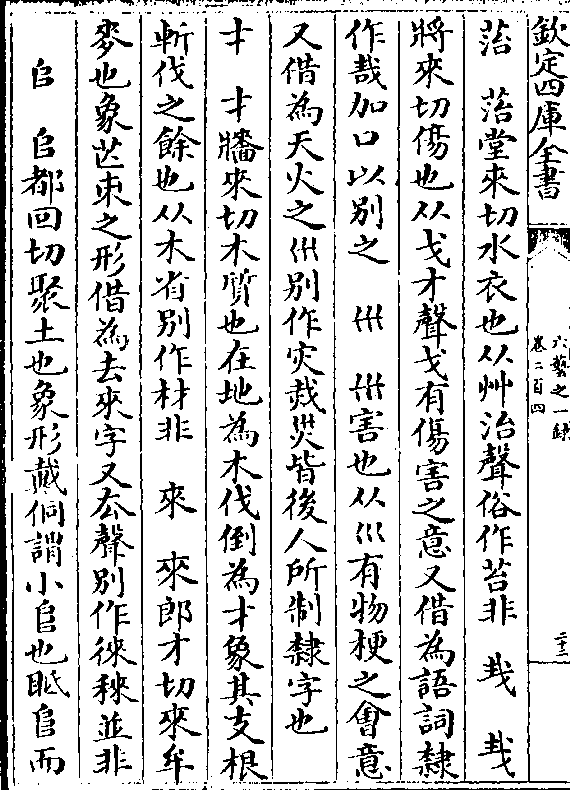 欽定四庫全書
六藝之一録
卷二百四
二十二
菭　菭堂來切水衣也从艸治聲俗作苔非　𢦏　𢦏
將來切傷也从戈才聲戈有傷害之意又借為語詞隸
作哉加口以别之　巛　巛害也从巛有物梗之會意
又借為天火之巛别作灾烖災皆後人所制隸字也
才　才牆來切木質也在地為木伐倒為才象其支根
斬伐之餘也从木省别作材非　來　來郎才切來牟
麥也象芒朿之形借為去來字又厺聲别作徠䅘並非
𠂤　𠂤都回切聚土也象形戴侗謂小𠂤也眡𠂤而